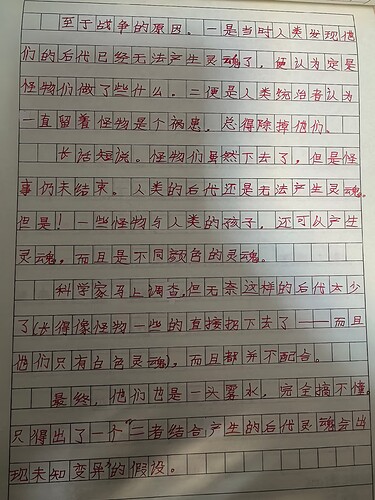 至于战争的原因。一是当时人类发现他
们的后代已经无法产生灵魂了，便认为定是
怪物们做了些什么。二便是人类统治者认为
一直留着怪物是个祸患，总得除掉他们。
长话短说。怪物们虽然下去了，但是怪
事仍未结束。人类的后代还是无法产生灵魂。
但是！一些怪物与人类的孩子，还可以产生
灵魂，而且是不同颜色的灵魂。
科学家马上调查，但无奈这样的后代太少
了（长得像怪物一些的直接扔下去了——而且
他们只有白色灵魂），而且都并不配合。
最终，他们也是一头雾水，完全搞不懂。
只得出了一个“二者结合产生的后代灵魂会出
现未知变异”的假设。